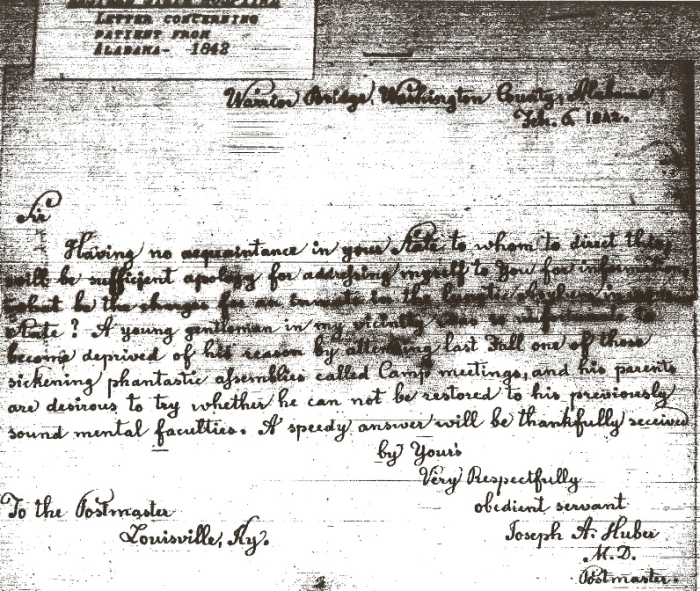 LETTER CONCERNING
PATIENT FROM
ALABAMA- 1842
Warrior Bridge, Washington County, Alabama
Feb. 6 1842.
Sir
Having no acquaintance in your State to whom to direct this
will be sufficient apology for addressing myself to You for information
what be the charges for an inmate in the lunatic in
State? A young gentleman in my vicinity was so unfortunate to
become deprived of his reason by attending last Fall one of those
sickening phantastic assemblies called Camp meetings, and his parents
are desirous to try whether he can not be restored to his previously
sound mental faculties. A speedy answer will be thankfully received
by Your's
Very Respectfully
obedient servant
Joseph A. Huber
M.D.
Postmaster.
To the Postmaster
Louisville, Ky.